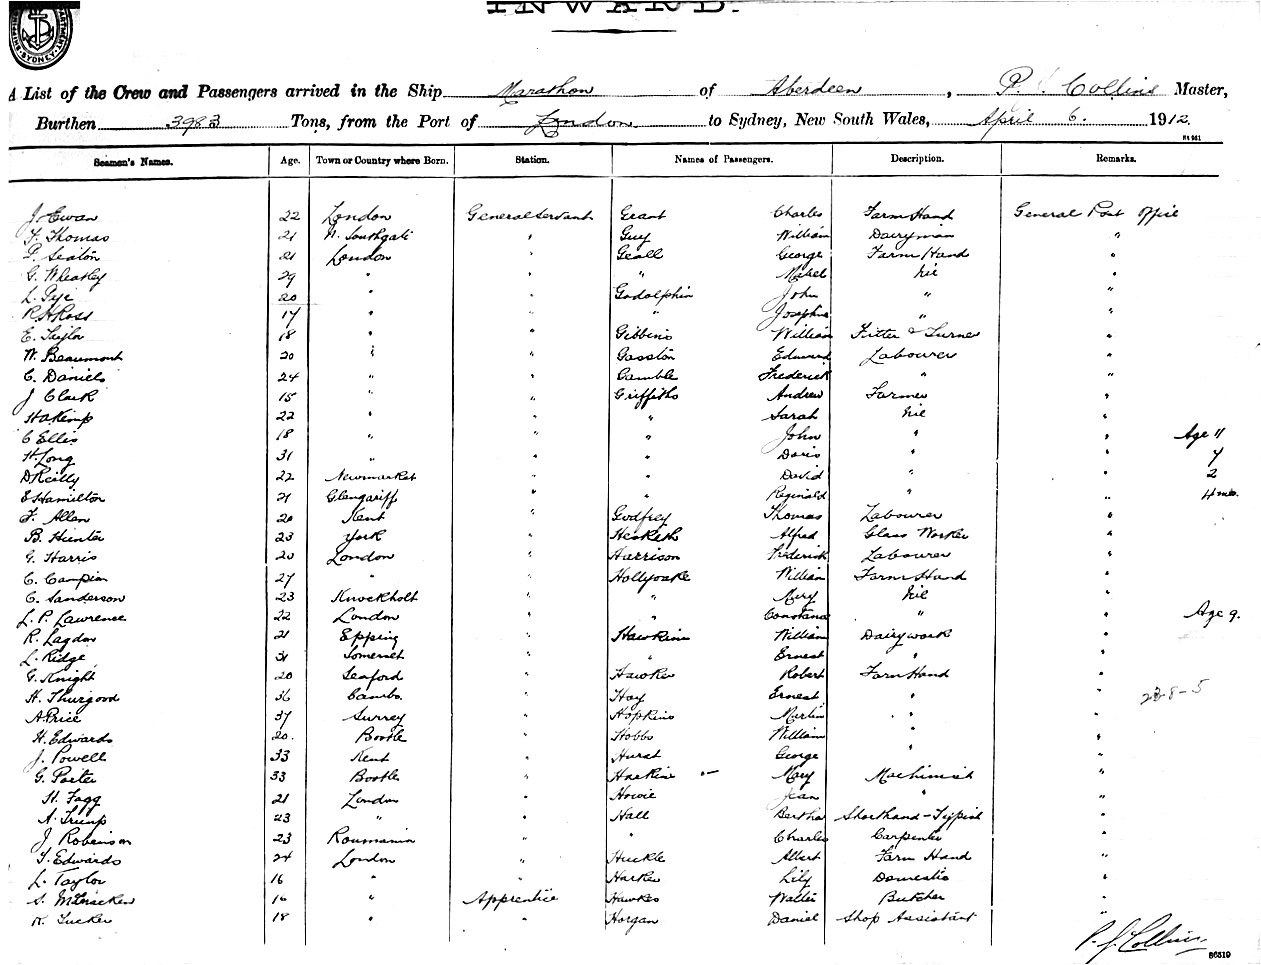 INWARD.
SYDNEY
A List of the Crew and Passengers arrived in the Ship Marathon of Aberdeen, P. J. Collins Master,
Burthen 3983 Tons, from the Port of London to Sydney, New South Wales, April 6. 1912.
Seamen's Names. Age. Town or Country where Born. Station. Names of Passengers. Description. Remarks.
J. Ewan 22 London General Servant Grant Charles Farm Hand General Post Office
F. Thomas 21 N. Southgate " Guy William Dairyman "
P. Seaton 21 London " Geall George Farm Hand "
G. Wheatley 29 " " " Mabel Nil "
L. Pye 20 " " Godolphin John " "
R H Ross 17 " " " Josephine " "
E. Taylor 18 " " Gibbins William Fitter & Turner "
W. Beaumont 20 " " Gasston Edward Labourer "
C. Daniels 24 " " Gamble Frederick " "
J Clark 15 " " Griffiths Andrew Farmer "
H Kemp 22 " " " Sarah Nil "
C Ellis 18 " " " John " " Age 11
H. Long 31 " " " Doris " " 7
D Reilly 22 Newmarket " " David " " 2
E Hamilton 21 Glengariff " " Reginald " " 4 mos.
F. Allen 20 Kent " Godfrey Thomas Labourer "
B. Hunter 23 York " Hesketh Alfred Glass Worker "
G. Harris 20 London " Harrison Frederick Labourer "
C. Campion 27 " " Hollyoake William Farm Hand "
C. Sanderson 23 Knockholt " " Mary Nil "
L. P. Lawrence 22 London " " Constance " " Age 9.
R. Lagdon 21 Epping " Hawkins William Dairywork "
L. Ridge 31 Somerset " " Ernest " "
G. Knight 20 Seaford " Hawker Robert Farm Hand "
H. Thurgood 36 Cambs. " Hay Ernest " " 28-8-5
A Price 37 Surrey " Hopkins Martin " "
H. Edwards 20. Bootle " Hobbs William " "
J. Powell 33 Kent " Hurst George " "
G. Porter 33 Bootle " Harkin Mary Machinist "
H. Fagg 21 London " Howie Jean " "
A. Trump 23 " " Hall Bertha Shorthand-Typist "
J. Robinson 23 Roumania " " Charles Carpenter "
T. Edwards 24 London " Huckle Albert Farm Hand "
L. Taylor 16 " " Harker Lily Domestic "
S. 16 " Apprentice Hawkes Walter Butcher "
R. Tucker 18 " " Horgan Daniel Shop Assistant "
P. J. Collins
86519